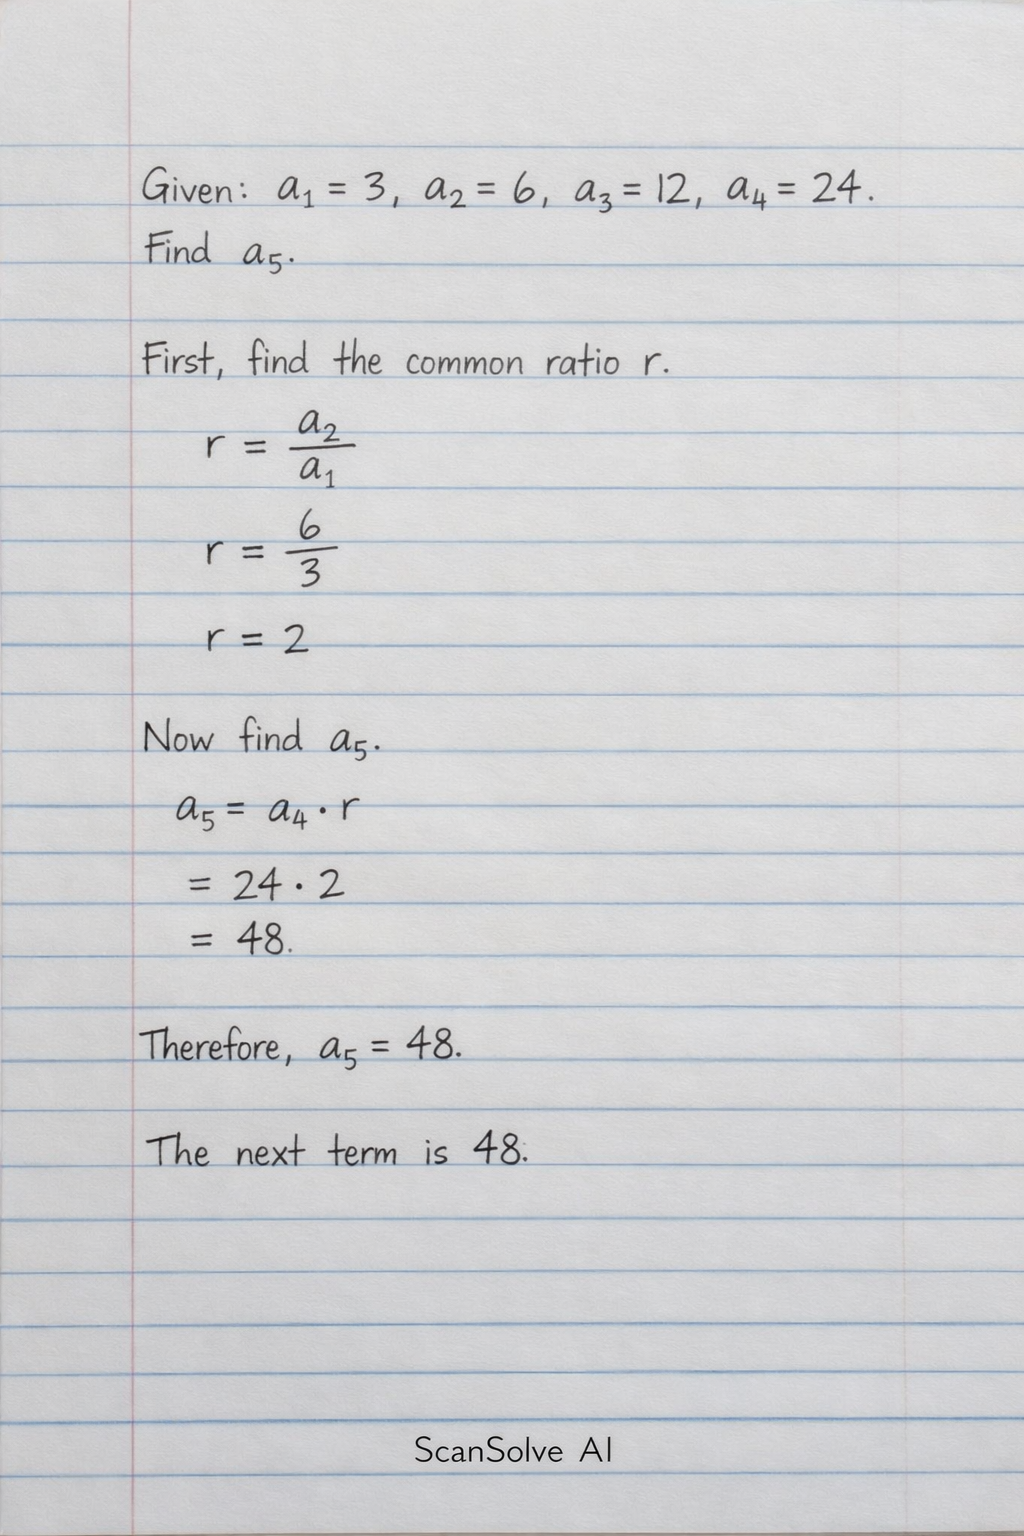 Given: a₁ = 3, a₂ = 6, a₃ = 12, a₄ = 24.
Find a₅.
First, find the common ratio r.
r = a₂/a₁
r = 6/3
r = 2
Now find a₅.
a₅ = a₄ · r
= 24 · 2
= 48.
Therefore, a₅ = 48.
The next term is 48.
ScanSolve AI